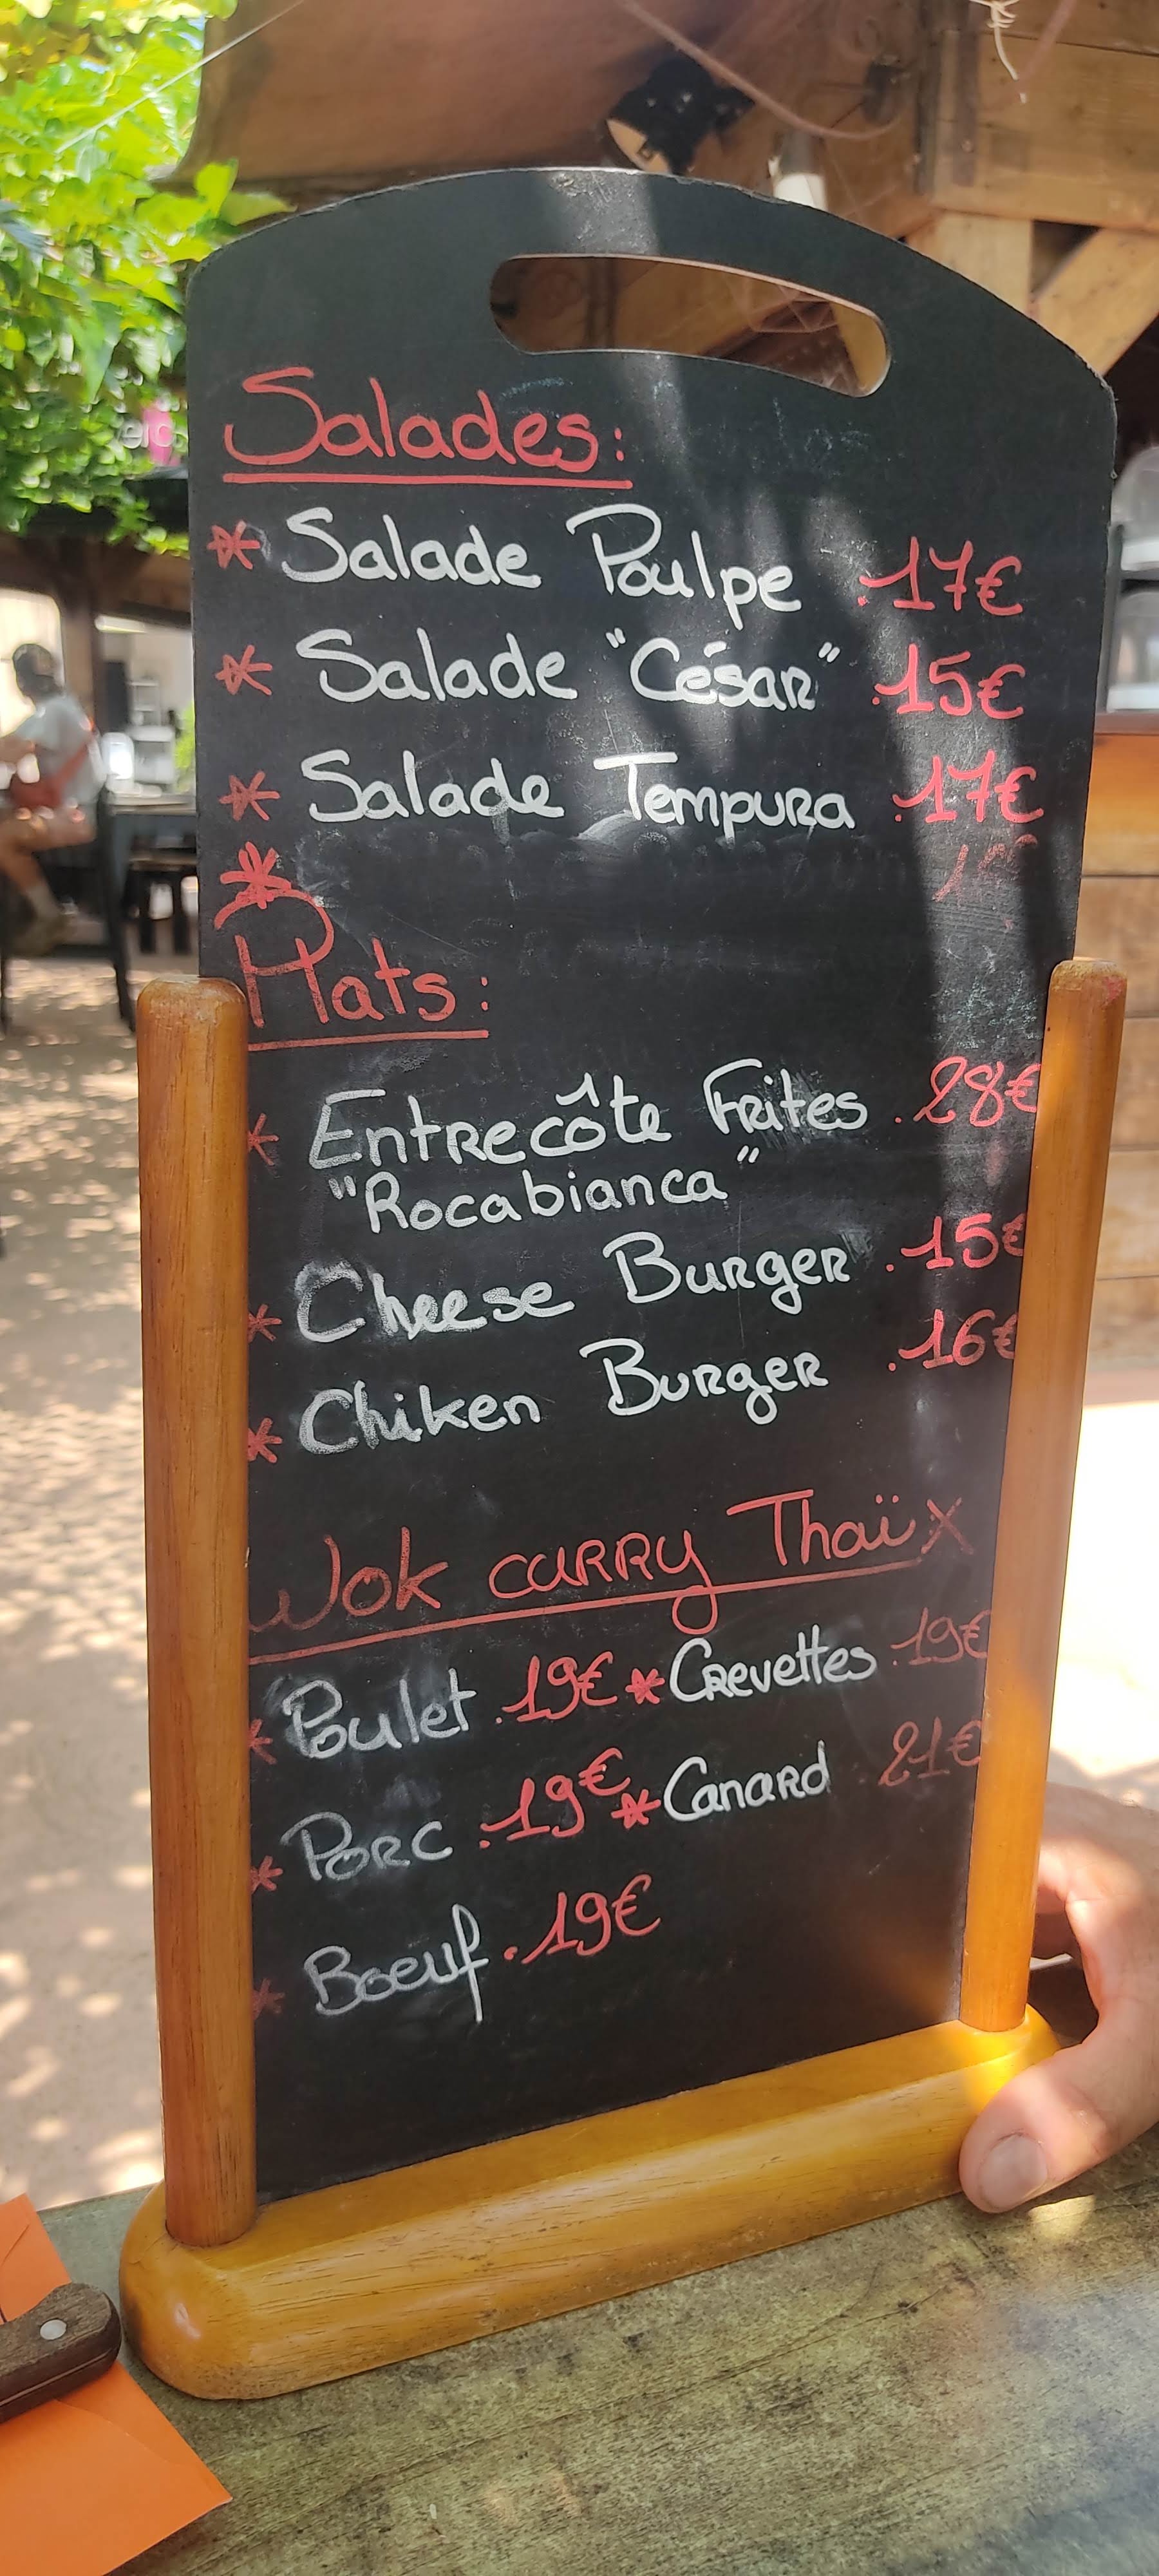 Salades:
* Salade Poulpe .17€
* Salade "César" .15€
* Salade Tempura .17€
*
Plats:
* Entrecôte Frites .28€
"Rocabianca"
* Cheese Burger .15€
* Chiken Burger .16€
Wok curry Thaï x
* Poulet .19€ * Crevettes .19€
* Porc .19€ * Canard 21€
* Boeuf .19€